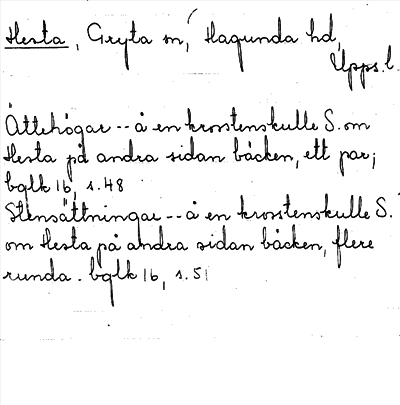 Hesta, Gryta sn, Hagunda hd,
Upps. l.
Ättehögar -- å en krosstenskulle S. om
Hesta på andra sidan bäcken, ett par;
bglk 16, s. 48
Stensättningar -- å en krosstenskulle S.
om Hesta på andra sidan bäcken, flere
runda. bglk 16, s. 51